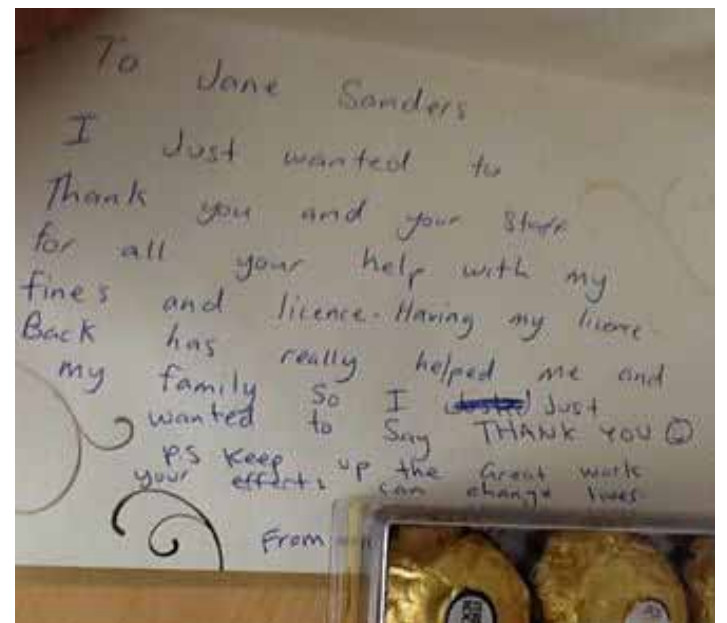 To Jane Sanders
I Just wanted to
Thank you and your Staff
for all your help with my
fines and licence. Having my licence
Back has really helped me and
my family So I Just
wanted to Say THANK YOU ☺
PS Keep up the Great work
your efforts can change lives.
From